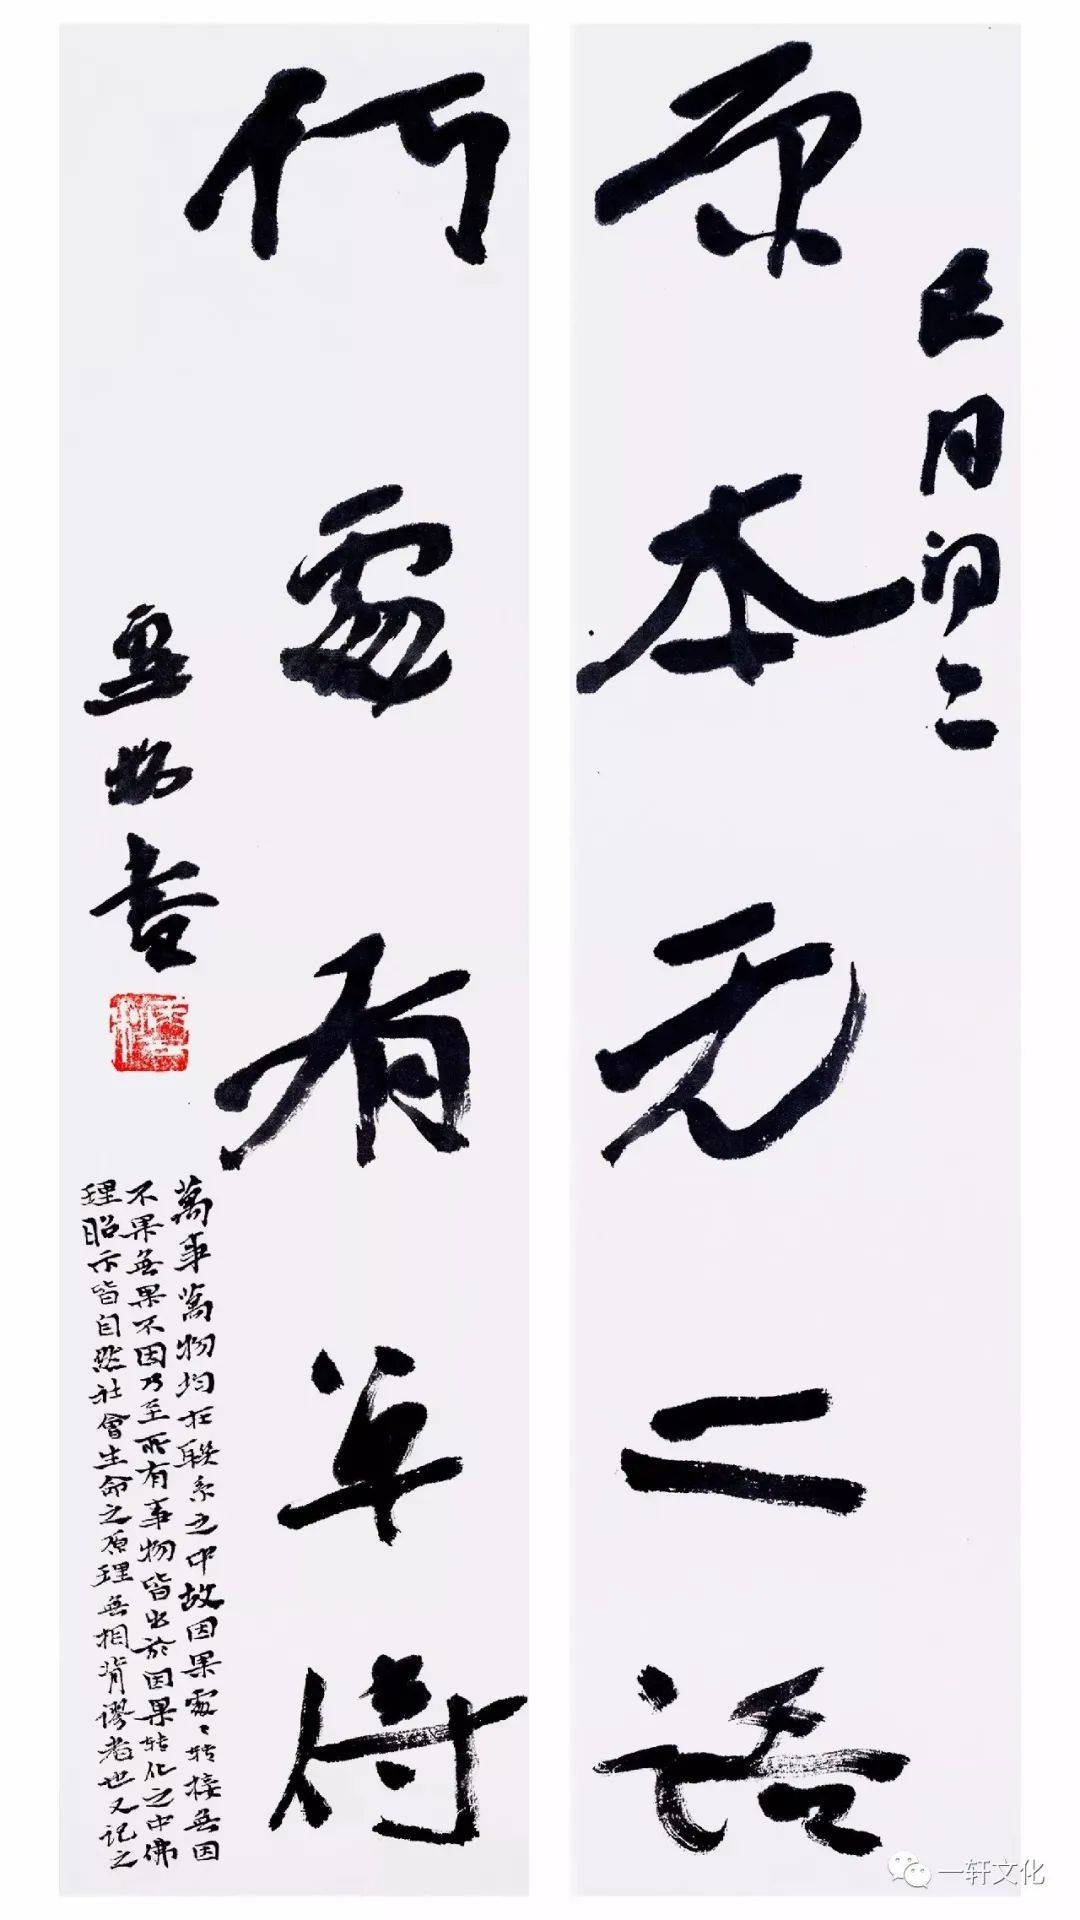 原本无二语
月初二
何處有单传
書
萬事萬物均在聯系之中故因果處〻转接無因
不果無果不因乃至所有事物皆出於因果转化之中佛
理昭示皆自然社會生命之原理無相背謬者也又记之
一轩文化